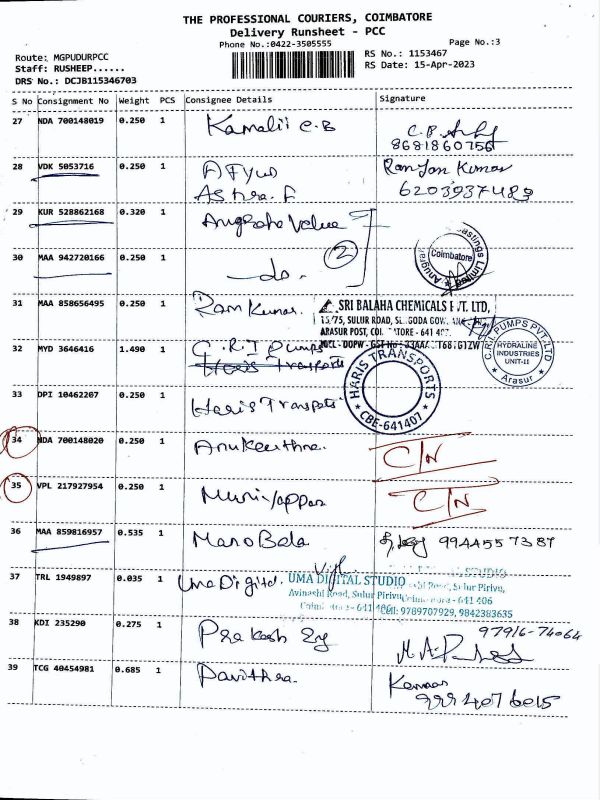 THE PROFESSIONAL COURIERS, COIMBATORE
Delivery Runsheet - PCC
Phone No.:0422-3505555
Page No.:3
Route: MGPUDURPCC
Staff: RUSHEEP......
DRS No.: DCJB115346703
RS No.: 1153467
RS Date: 15-Apr-2023
S No Consignment No Weight PCS Consignee Details Signature
27 NDA 700148019 0.250 1 Kamalii C.B
8681860756
28 VDK 5053716 0.250 1
Ranjan Kumar
6203937483
29 KUR 528862168 0.320 1
2
Coimbatore
30 MAA 942720166 0.250 1 -do-
31 MAA 858656495 0.250 1 Ram Kumar
SRI BALAHA CHEMICALS PVT. LTD,
15/75, SULUR ROAD,
ARASUR POST,
32 MYD 3646416 1.490 1 C.R.I Pumps
Haris Transports
C.R.I. PUMPS PVT LTD.
HYDRALINE
INDUSTRIES
UNIT-II
Arasur
HARIS TRANSPORTS
CBE-641407
33 DPI 10462207 0.250 1 Haris Transports
34 NDA 700148020 0.250 1 C/N
35 VPL 217927954 0.250 1 Muniyappan C/N
36 MAA 859816957 0.535 1 Mano Bala
9944557387
37 TRL 1949897 0.035 1 Uma Digital
UMA DIGITAL STUDIO
Avinashi Road, Sulur Pirivu,
Cell: 9789707929, 9842383635
38 KDI 235290 0.275 1 Prakash
97916-74064
39 TCG 40454981 0.685 1 Pavithra
9994076015